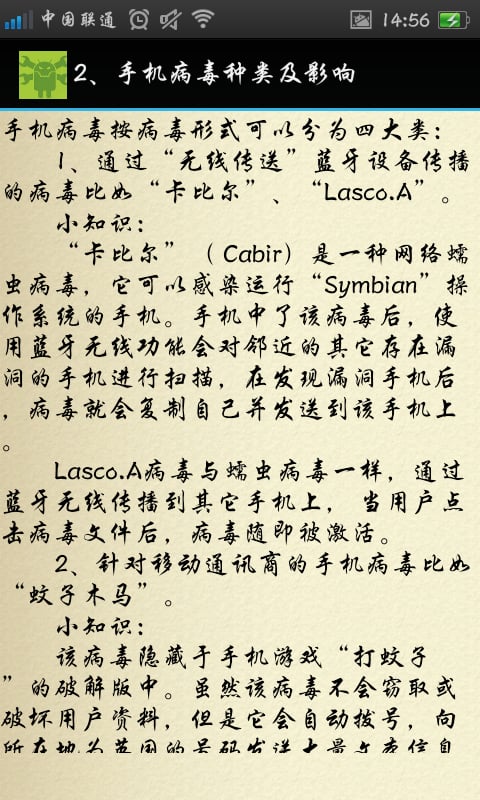 中国联通 14:56
2、手机病毒种类及影响
手机病毒按病毒形式可以分为四大类：
1、通过“无线传送”蓝牙设备传播
的病毒比如“卡比尔”、“Lasco.A”。
小知识：
“卡比尔”（Cabir）是一种网络蠕
虫病毒，它可以感染运行“Symbian”操
作系统的手机。手机中了该病毒后，使
用蓝牙无线功能会对邻近的其它存在漏
洞的手机进行扫描，在发现漏洞手机后
，病毒就会复制自己并发送到该手机上
。
Lasco.A病毒与蠕虫病毒一样，通过
蓝牙无线传播到其它手机上，当用户点
击病毒文件后，病毒随即被激活。
2、针对移动通讯商的手机病毒比如
“蚊子木马”。
小知识：
该病毒隐藏于手机游戏“打蚊子
”的破解版中。虽然该病毒不会窃取或
破坏用户资料，但是它会自动拨号，向
所在地为英国的号码发送大量文本信息